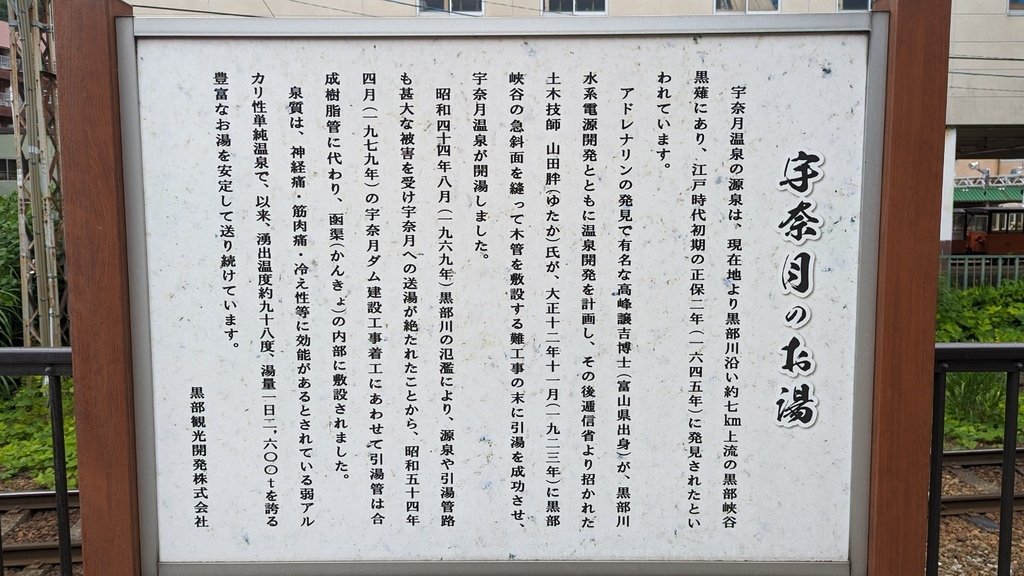 宇奈月のお湯
宇奈月温泉の源泉は、現在地より黒部川沿い約七km上流の黒部峡谷
黒薙にあり、江戸時代初期の正保二年(一六四五年)に発見されたとい
われています。
アドレナリンの発見で有名な高峰譲吉博士(富山県出身)が、黒部川
水系電源開発とともに温泉開発を計画し、その後逓信省より招かれた
土木技師 山田胖(ゆたか)氏が、大正十二年十一月(一九二三年)に黒部
峡谷の急斜面を縫って木管を敷設する難工事の末に引湯を成功させ、
宇奈月温泉が開湯しました。
昭和四十四年八月(一九六九年)黒部川の氾濫により、源泉や引湯管路
も甚大な被害を受け宇奈月への送湯が絶たれたことから、昭和五十四年
四月(一九七九年)の宇奈月ダム建設工事着工にあわせて引湯管は合
成樹脂管に代わり、函渠(かんきょ)の内部に敷設されました。
泉質は、神経痛・筋肉痛・冷え性等に効能があるとされている弱アル
カリ性単純温泉で、以来、湧出温度約九十八度、湯量一日二,六〇〇tを誇る
豊富なお湯を安定して送り続けています。
黒部観光開発株式会社